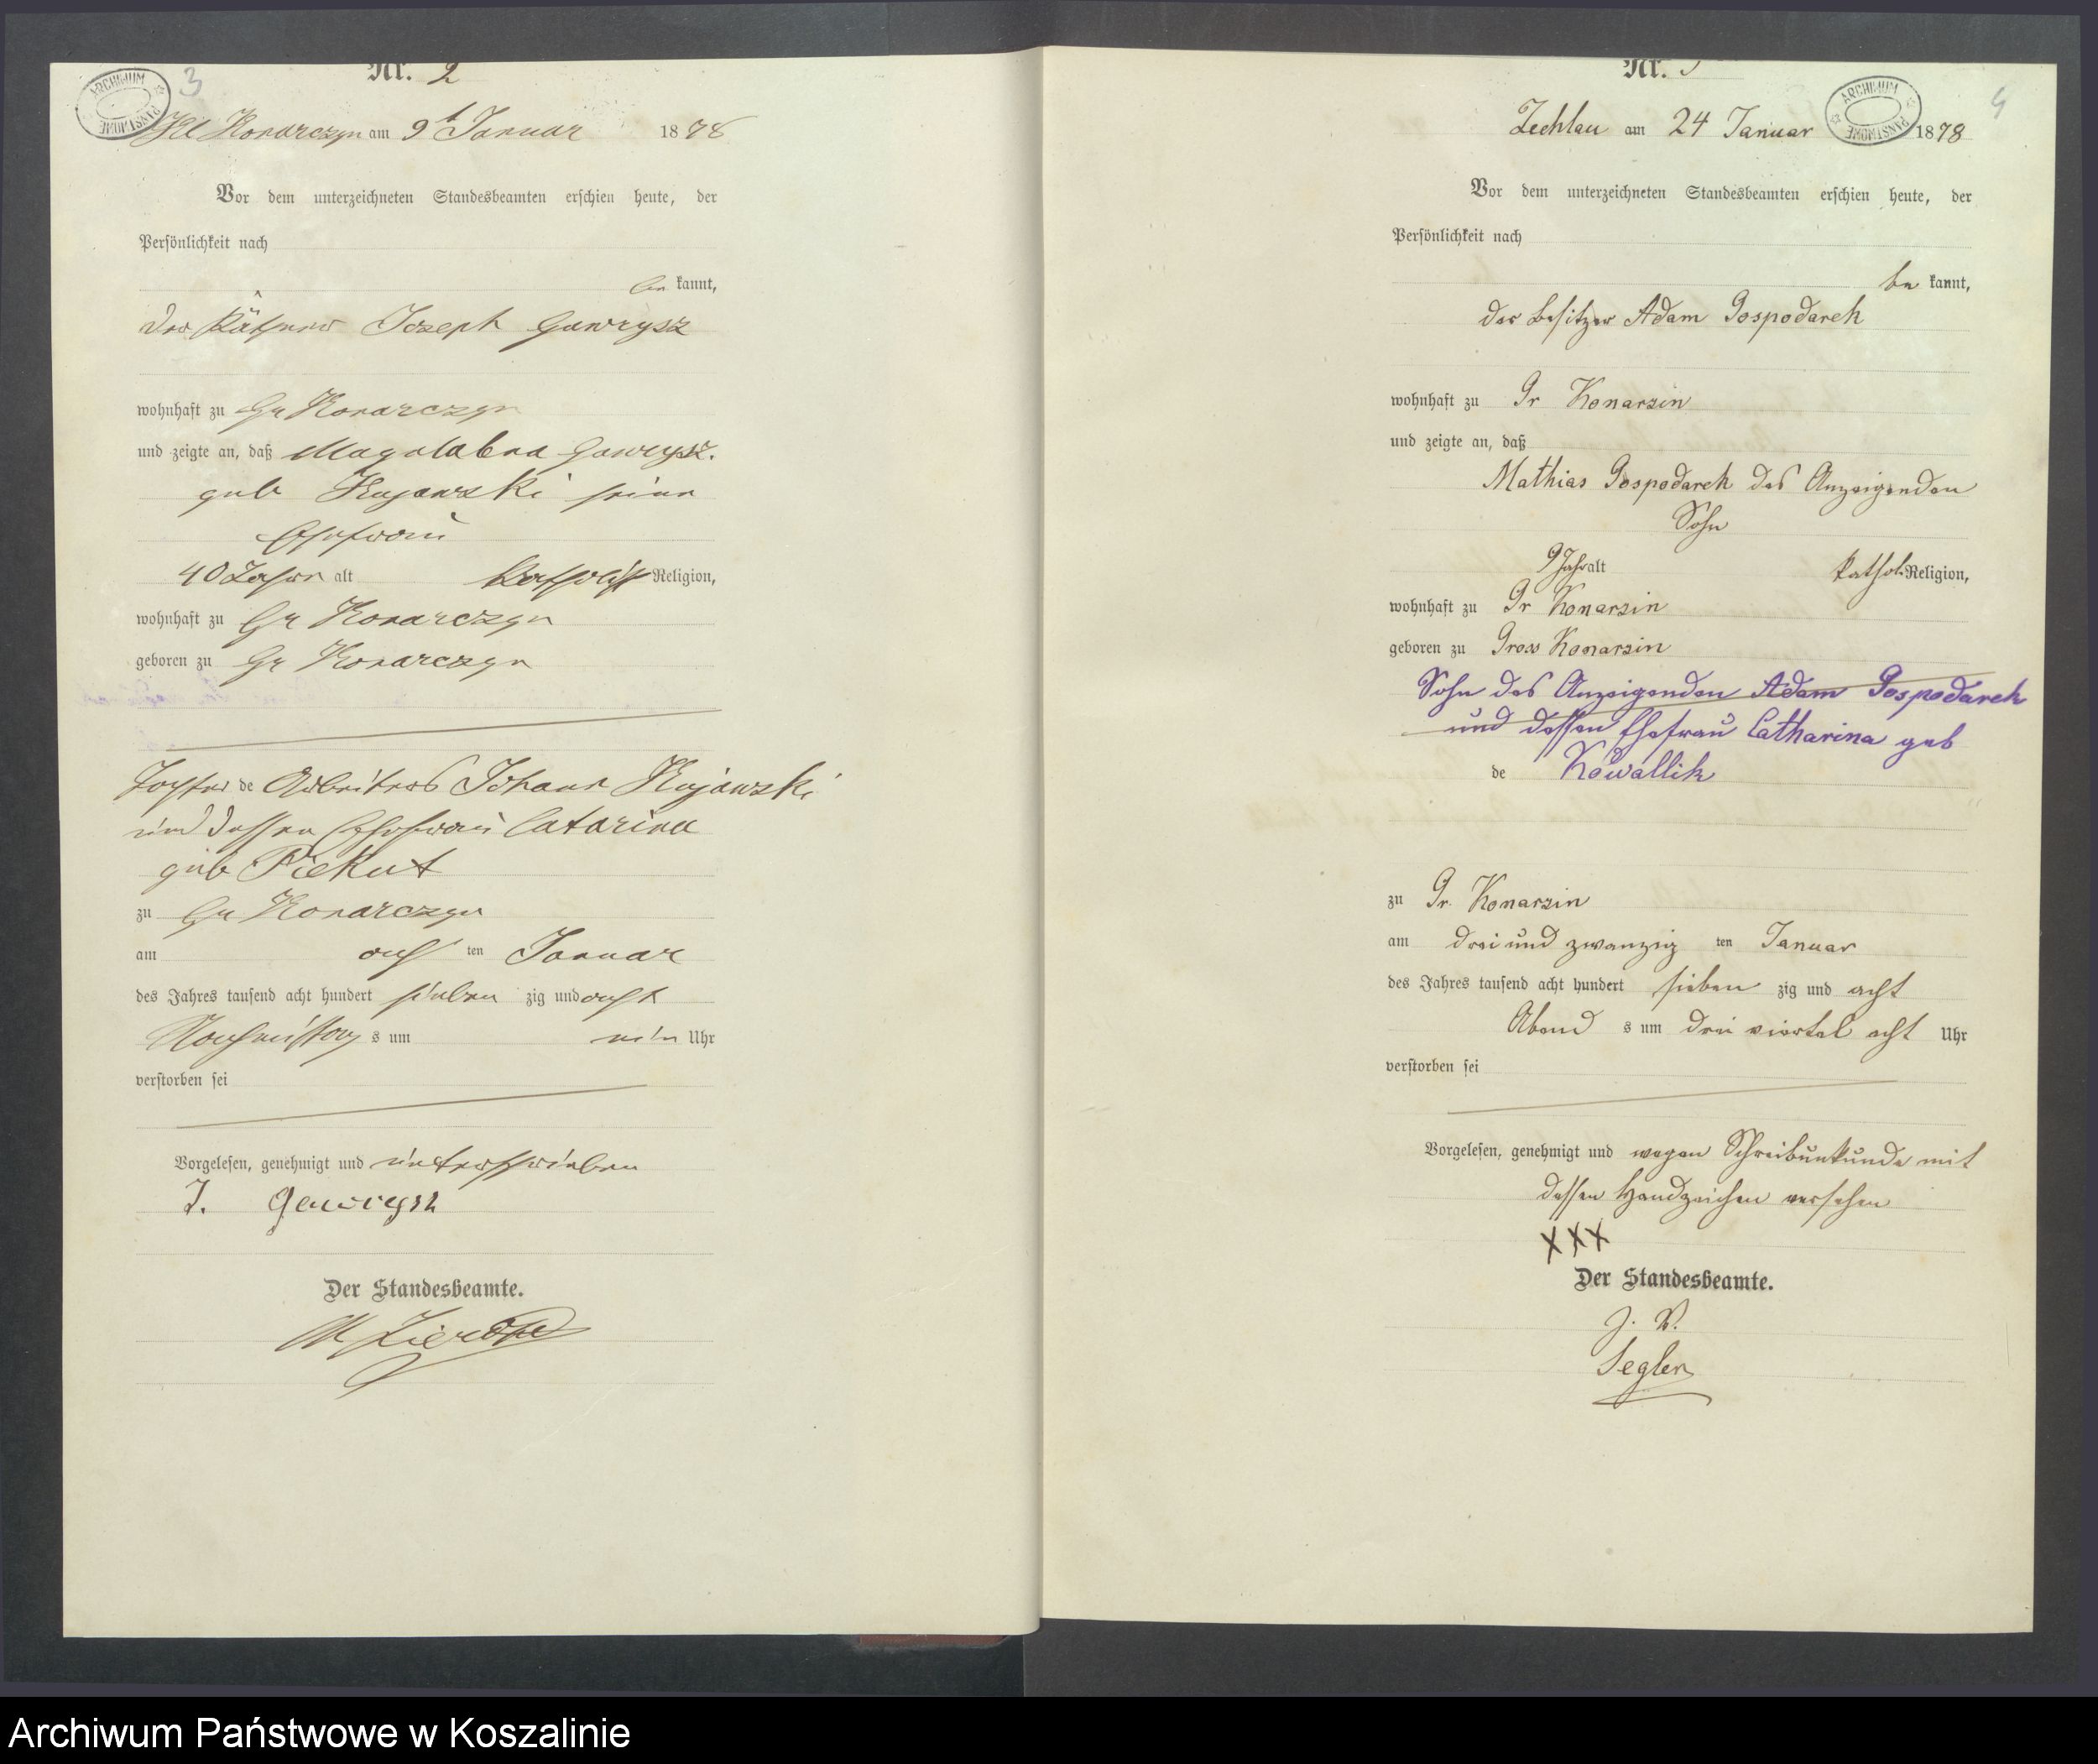 Nr. 2
3
Kl Konarczyn am 9t Januar 1878
Vor dem unterzeichneten Standesbeamten erschien heute, der
Persönlichkeit nach
be kannt,
der Käthner Joseph Gawrysz
wohnhaft zu Gr Konarczyn
und zeigte an, daß Magdalena Gawrysz.
geb Kujawski seine
Ehefrau
40 Jahre alt katholisch Religion,
wohnhaft zu Gr Konarczyn
geboren zu Gr Konarczyn
Tochter de Arbeiters Johann Kujawski
und dessen Ehefrau Catarina
geb Piekut
zu Gr Konarczyn
am acht ten Januar
des Jahres tausend acht hundert sieben zig und acht
Nachmittag s um ein Uhr
verstorben sei
Vorgelesen, genehmigt und unterschrieben
J. Gawrysz
Der Standesbeamte.
Nr.
4
Zechlau am 24 Januar 1878
Vor dem unterzeichneten Standesbeamten erschien heute, der
Persönlichkeit nach
be kannt,
der Besitzer Adam Gospodarek
wohnhaft zu Gr Konarzin
und zeigte an, daß
Mathias Gospodarek des Anzeigenden
Sohn
9 Jahr alt kathol. Religion,
wohnhaft zu Gr Konarzin
geboren zu Gross Konarzin
Sohn des Anzeigenden Adam Gospodarek
und dessen Ehefrau Catharina geb
de Kowallik
zu Gr. Konarzin
am drei und zwanzig ten Januar
des Jahres tausend acht hundert sieben zig und acht
Abend s um drei viertel acht Uhr
verstorben sei
Vorgelesen, genehmigt und wegen Schreibunkunde mit
dessen Handzeichen versehen
XXX
Der Standesbeamte.
J. V.
Segler
ARCHIWUM PAŃSTWOWE
ARCHIWUM PAŃSTWOWE
Archiwum Państwowe w Koszalinie